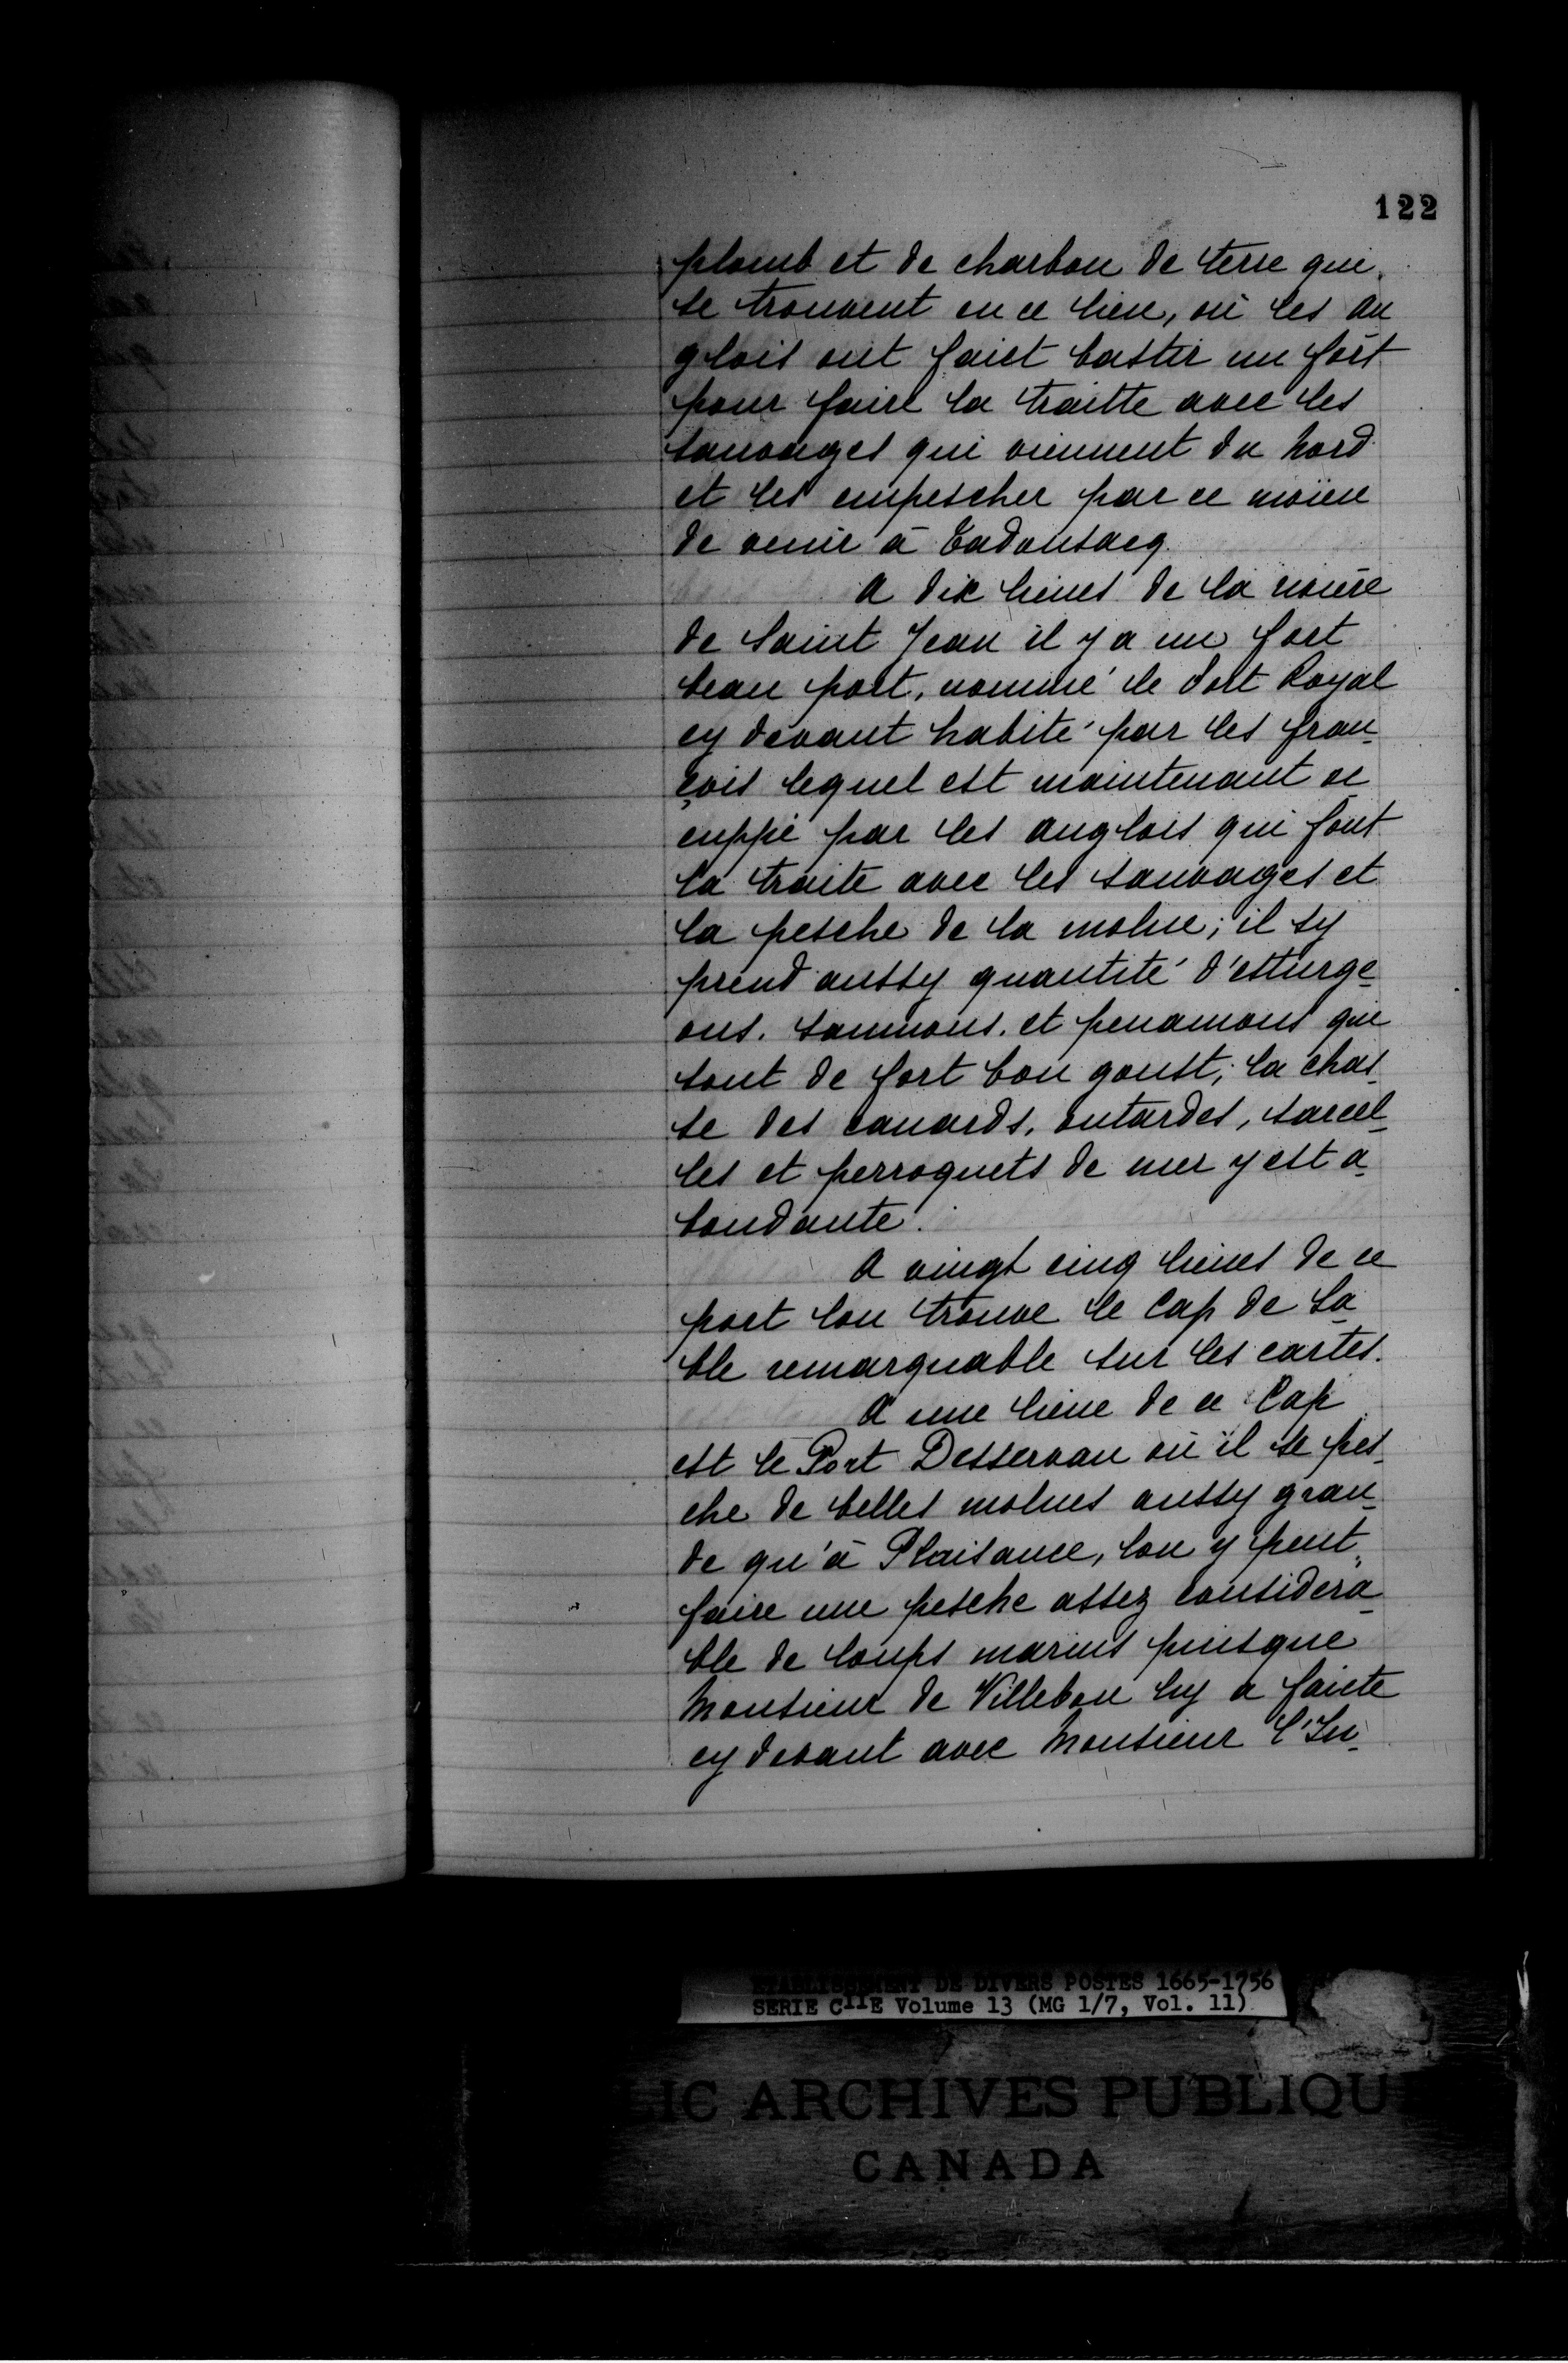 122
plomb et de charbon de terre qui
se trouvent en ce lieu, où les an
glois ont faict bastir un fort
pour faire la traitte avec les
sauvages qui viennent du Nord
et les empescher par ce moïen
de venir à Tadoussacq.
A dix lieues de la rivière
de Saint Jean il y a un fort
beau port, nommé le Port Royal
cy devant habité par les fran-
çois lequel est maintenant oc
cuppé par les anglois qui font
la traite avec les sauvages et
la pesche de la molue; il sy
prend aussy quantité d'esturge-
ons. saumons. et penamons qui
sont de fort bon goust; la chas-
se des canards, outardes, sarcel-
les et perroquets de mer y est a-
bondante.
A vingt cinq lieues de ce
port lon trouve le Cap de Sa-
ble remarquable sur les cartes.
A une lieue de ce Cap
est le Port Desservan où il se pes-
che de belles molues aussy gran-
de qu'à Plaisance, lon y peut
faire une pesche assez considera-
ble de loups marins puisque
Monsieur de Villebon luy a faicte
cy devant avec Monsieur l'In-
ETABLISSEMENT DE DIVERS POSTES 1665-1756
SERIE CIIE Volume 13 (MG 1/7, Vol. 11)
LIC ARCHIVES PUBLIQU
CANADA